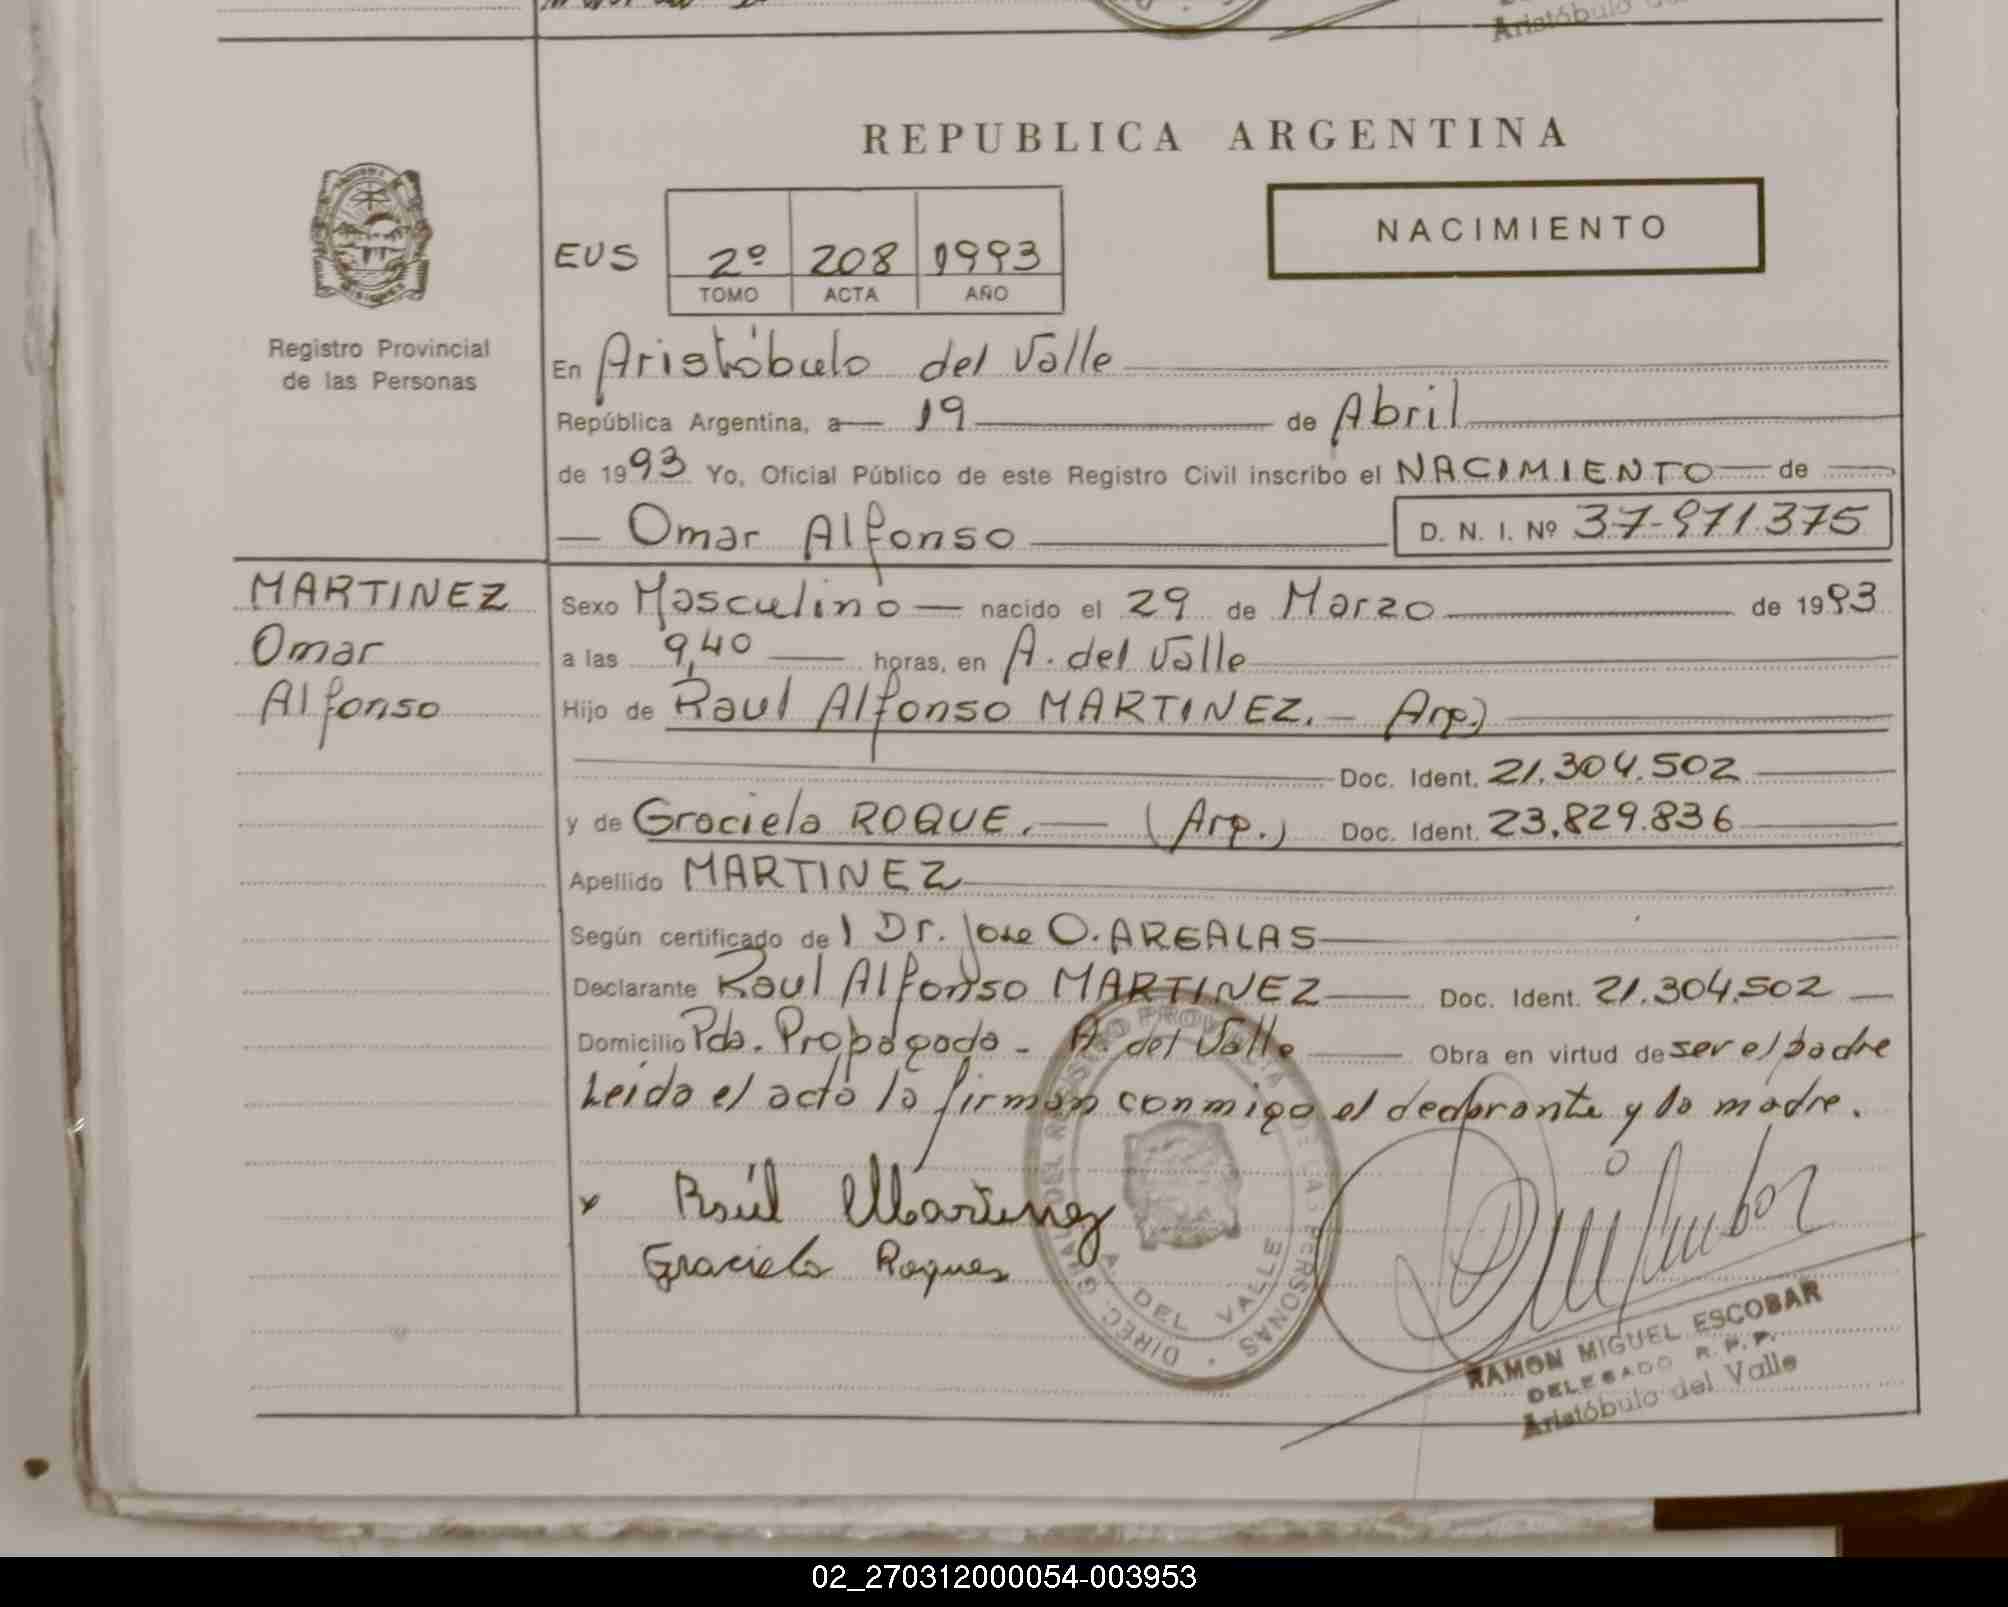 Aristóbulo
REPUBLICA ARGENTINA
NACIMIENTO
EUS 2º 208 1993
TOMO ACTA AÑO
Registro Provincial
de las Personas
En Aristóbulo del Valle
República Argentina, a 19 de Abril
de 1993 Yo, Oficial Público de este Registro Civil inscribo el NACIMIENTO de
Omar Alfonso D. N. I. Nº 37-971.375
MARTINEZ
Omar
Alfonso
Sexo Masculino nacido el 29 de Marzo de 1993
a las 9,40 horas, en A. del Valle
Hijo de Raul Alfonso MARTINEZ. - Arg.)
Doc. Ident. 21.304.502
y de Graciela ROQUE. (Arg.) Doc. Ident. 23.829.836
Apellido MARTINEZ
Según certificado del Dr. Jose O. AREALAS
Declarante Raul Alfonso MARTINEZ Doc. Ident. 21.304.502
Domicilio Pda. Propagada - A. del Valle Obra en virtud de ser el padre
Leida el acta la firman conmigo el declarante y la madre.
x Raúl Martinez
Graciela Roques
DIREC. GRAL. DEL REGISTRO PROVINCIAL DE LAS PERSONAS
A. DEL VALLE
RAMON MIGUEL ESCOBAR
DELEGADO R. P. P.
Aristóbulo del Valle
02_270312000054-003953